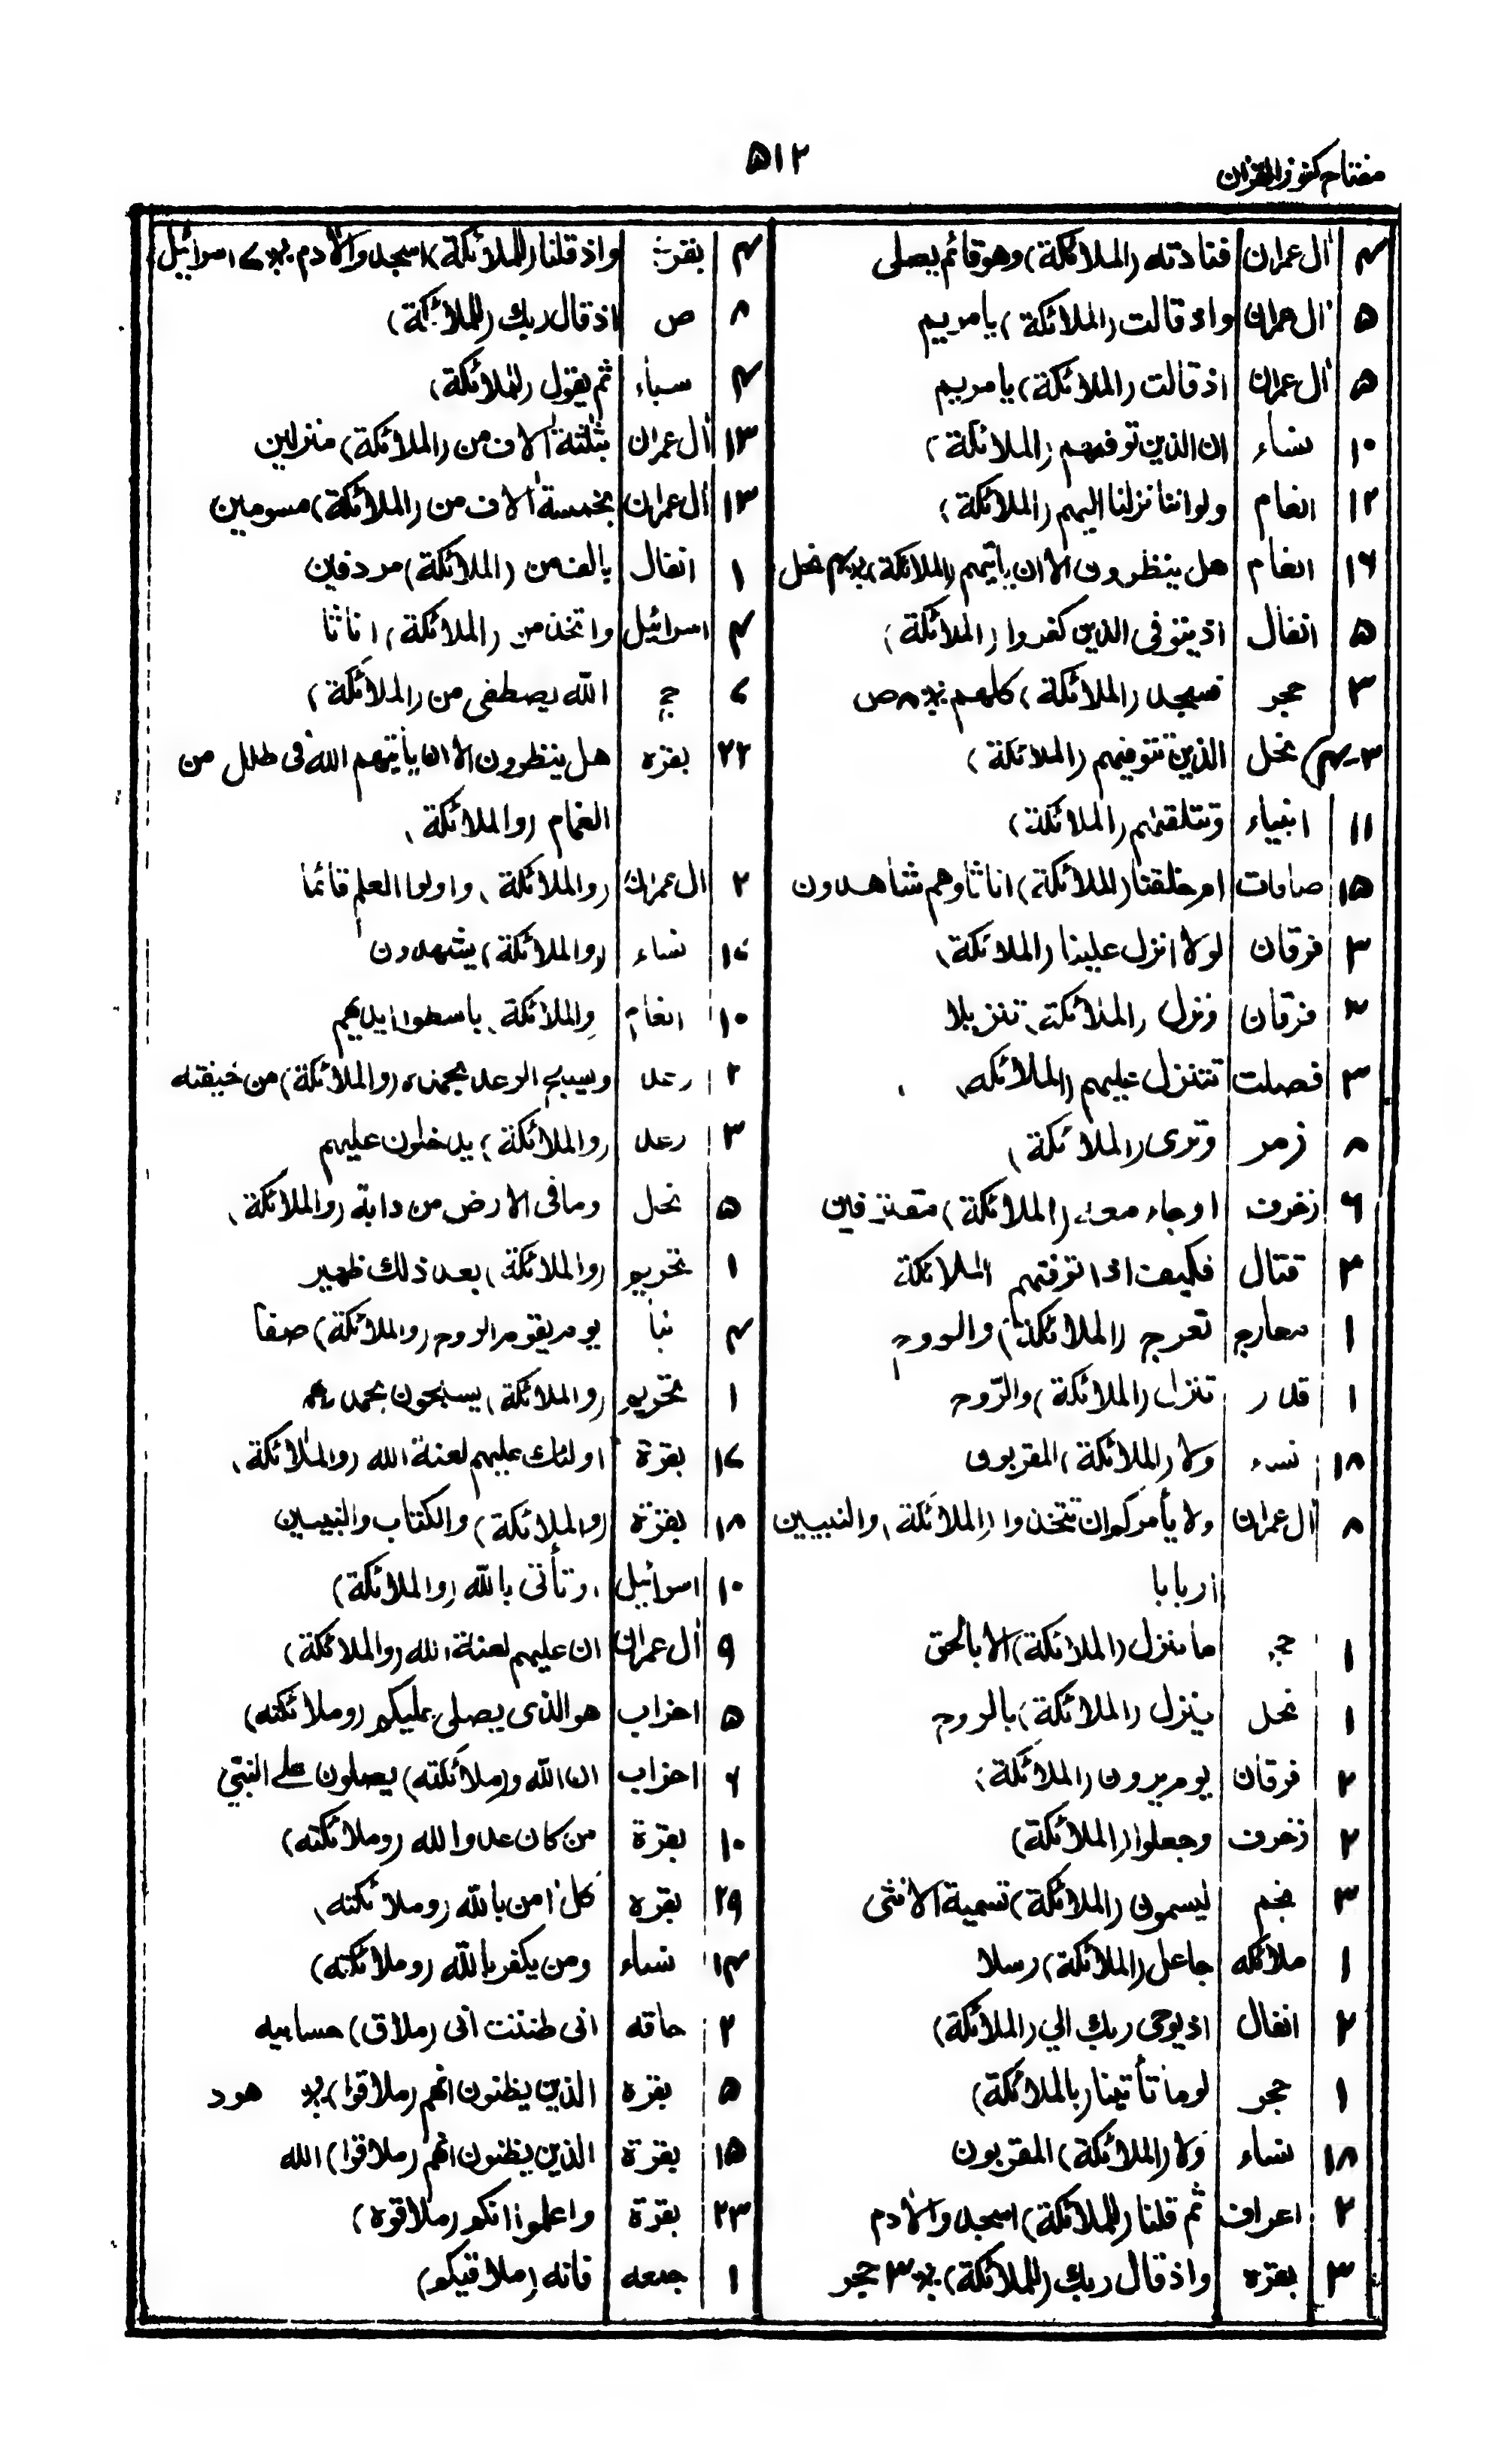 مفتاح كنوز القران
۵۱۲
۴ اٰل عمران فنادته (الملائكة) وهو قائم يصلى
۵ اٰل عمران واذ قالت (الملائكة) يا مريم
۵ اٰل عمران اذ قالت (الملائكة) يا مريم
۱۰ نساء ان الذين توفهم (الملائكة)
۱۲ انعام ولو اننا نزلنا اليهم (الملائكة)
۱۶ انعام هل ينظرون الا ان ياتيهم (الملائكة) ※ ۴ نحل
۵ انفال اذ يتوفى الذين كفروا (الملائكة)
۳ حجر فسجد (الملائكة) كلهم ※ ۸ ص
۳-۴ نحل الذين تتوفيهم (الملائكة)
۱۱ انبياء وتتلقهم (الملائكة)
۱۵ صافات ام خلقنا (الملائكة) اناثا وهم شاهدون
۳ فرقان لولا انزل علينا (الملائكة)
۳ فرقان ونزل (الملائكة) تنزيلا
۳ فصلت تتنزل عليهم (الملائكه)
۸ زمر وترى (الملائكة)
۶ زخرف اوجاء معه (الملائكة) مقترفين
۳ قتال فكيف اذا توفتهم الملائكة
۱ معارج تعرج (الملائكة) والروح
۱ قدر تنزل (الملائكة) والرّوح
۱۸ نساء ولا (الملائكة) المقربون
۸ اٰل عمران ولا يأمركم ان تتخذوا (الملائكة) والنبيين
اربابا
۱ حجر ما ننزل (الملائكة) الا بالحق
۱ نحل ينزل (الملائكة) بالروح
۲ فرقان يوم يرون (الملائكة)
۲ زخرف وجعلوا (الملائكة)
۳ نجم ليسمون (الملائكة) تسمية الانثى
۱ ملائكه جاعل (الملائكة) رسلا
۲ انفال اذ يوحى ربك الي (الملائكة)
۱ حجر لوما تأتينا (بالملائكة)
۱۸ نساء ولا (الملائكة) المقربون
۲ اعراف ثم قلنا (للملائكة) اسجدوا لاٰدم
۳ بقره واذ قال ربك (للملائكة) ※ ۳ حجر
۴ بقرة واذ قلنا (للملائكة) اسجدوا لاٰدم ※ ۷ اسرائيل
۸ ص اذ قال ربك (للملائكة)
۴ سباء ثم يقول (للملائكة)
۱۳ اٰل عمران بثلثة اٰلاف من (الملائكة) منزلين
۱۳ اٰل عمران بخمسة اٰلاف من (الملائكة) مسومين
۱ انفال بالف من (الملائكة) مردفين
۴ اسرائيل واتخذ من (الملائكة) اناثا
۷ حج الله يصطفى من (الملائكة)
۲۲ بقره هل ينظرون الا ان يأتيهم الله فى ظلل من
الغمام (والملائكة)
۲ اٰل عمران (والملائكة) واولوا العلم قائما
۱۷ نساء (والملائكة) يشهدون
۱۰ انعام والملائكة باسطوا ايديهم
۲ رعد ويسبح الرعد بحمده (والملائكة) من خيفته
۳ رعد (والملائكة) يدخلون عليهم
۵ نحل وما فى الارض من دابة (والملائكة)
۱ تحريم (والملائكة) بعد ذلك ظهير
۴ نبأ يوم يقوم الروح (والملائكة) صفا
۱ تحريم (والملائكة) يسبحون بحمد ربهم
۱۷ بقرة اولئك عليهم لعنة الله (والملائكة)
۱۸ بقرة (والملائكة) والكتاب والنبيين
۱۰ اسرائيل او تأتى بالله (والملائكة)
۹ اٰل عمران ان عليهم لعنة الله (والملائكة)
۵ احزاب هو الذى يصلى عليكم (وملائكته)
۶ احزاب ان الله و(ملائكته) يصلون على النبيّ
۱۰ بقرة من كان عدوا لله (وملائكته)
۲۹ بقره كل اٰمن بالله (وملائكته)
۱۴ نساء ومن يكفر بالله (وملائكته)
۲ حاقه انى ظننت انى (ملاق) حسابيه
۵ بقره الذين يظنون انهم (ملاقوا) ※ هود
۱۵ بقرة الذين يظنون انهم (ملاقوا) الله
۲۳ بقرة واعلموا انكم (ملاقوه)
۱ جمعه فانه (ملاقيكم)